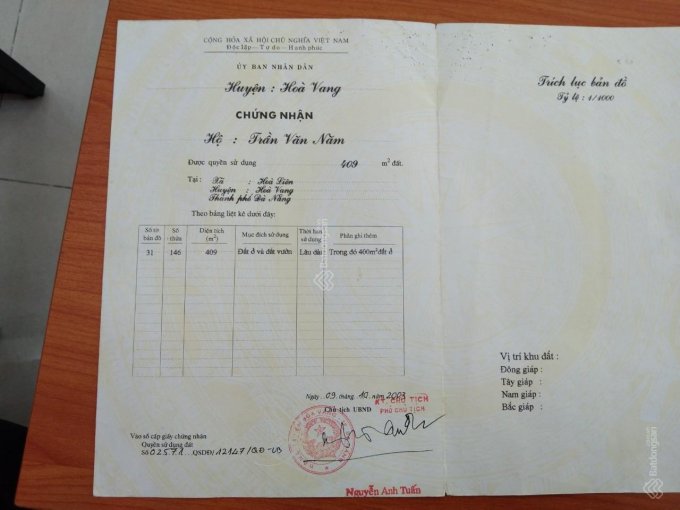 CỘNG HÒA XÃ HỘI CHỦ NGHĨA VIỆT NAM
Độc lập - Tự do - Hạnh phúc
ỦY BAN NHÂN DÂN
Huyện : Hoà Vang
CHỨNG NHẬN
Hộ : Trần Văn Năm
Được quyền sử dụng 409 m² đất.
Tại : Xã : Hoà Liên
Huyện : Hoà Vang
Thành phố Đà Nẵng
Theo bảng liệt kê dưới đây:
Số tờ bản đồ | Số thửa | Diện tích (m²) | Mục đích sử dụng | Thời hạn sử dụng | Phần ghi thêm
31 | 146 | 409 | Đất ở và đất vườn | Lâu dài | Trong đó 400m² đất ở
Ngày 09 tháng 10 năm 2003
Chủ tịch UBND
KT. CHỦ TỊCH
PHÓ CHỦ TỊCH
Vào sổ cấp giấy chứng nhận
Quyền sử dụng đất
Số 02571 QSDĐ/ 12147/QĐ-UB
Nguyễn Anh Tuấn
Trích lục bản đồ
Tỷ lệ : 1/1000
Vị trí khu đất :
Đông giáp :
Tây giáp :
Nam giáp :
Bắc giáp :
Batdongsan